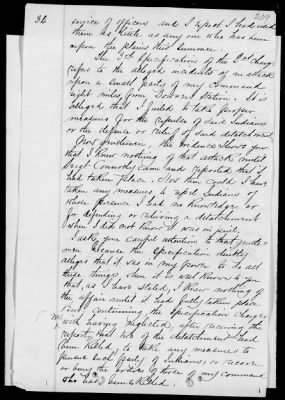 32
229
service of officers and I repeat I had used
them as little as any one who has been
upon the plains this summer.
The 3rd Specification of the 2nd charge
refers to the alleged incidents of an attack
upon a small party of my command
eight miles from Downers Station. It is
alleged that I failed to take proper
measures for the repulse of said Indians
or the defence or relief of said detachment.
Now gentlemen, the evidence shows you
that I knew nothing of that attack until
Sergt Connelly came and reported that it
had taken place. How then could I have
taken any measures to repel Indians of
whose presence I had no knowledge or
for defending or relieving a detachment
when I did not know it was in peril.
I ask your careful attention to that gentle-
men because the Specification directly
alleges that it was in my power to do all
these things when it is well known to you
that, as I have stated, I knew nothing of
the affair until it had fully taken place
But, continuing, the Specification charges
me with having neglected, after receiving the
report, that two of the detachment had
been killed, to take any measures to
pursue such party of Indians, or recover
or bury the bodies of those of my command
who had been killed.